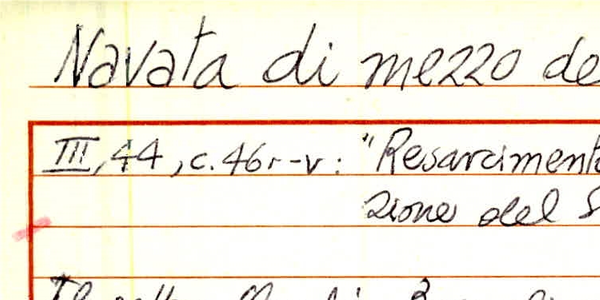 Navata di mezzo de
III, 44, c. 46r-v: "Resarciment
zione del S